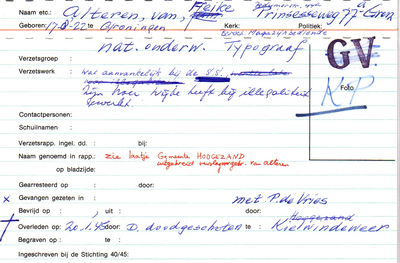 Naam etc.: Alteren, van, Feike Prinsesseweg 77a Gron.
Geboren: 17-8-22 te Groningen Kerk: Politiek:
nat. onderw. Typograaf
GV
Verzetsgroep :
Verzetswerk : was aanvankelijk bij de S.S.,
Zijn broer Wybe heeft bij illegaliteit
gewerkt.
Foto
KP
Contactpersonen:
Schuilnamen :
Verzetsrapp. ingel. dd. : bij:
Naam genoemd in rapp.: zie kaartje Gemeente HOOGEZAND
uitgebreid van Alteren
op bladzijde:
Gearresteerd op : door:
x Gevangen gezeten in : met P. de Vries
Bevrijd op : , uit : door: Hoogezand
Overleden op : 20.1.45 door: D. doodgeschoten te : Kielwindeweer
Begraven op : te :
Ingeschreven bij de Stichting 40/45: